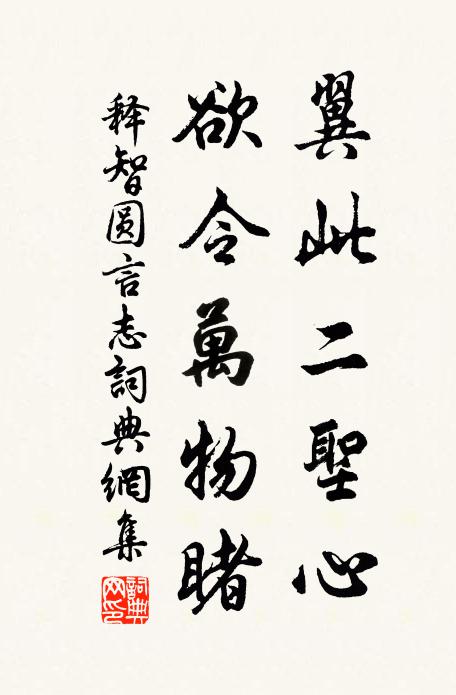 翼此二聖心
欲令萬物睹
释智圓言志詞典網集
詞典网印